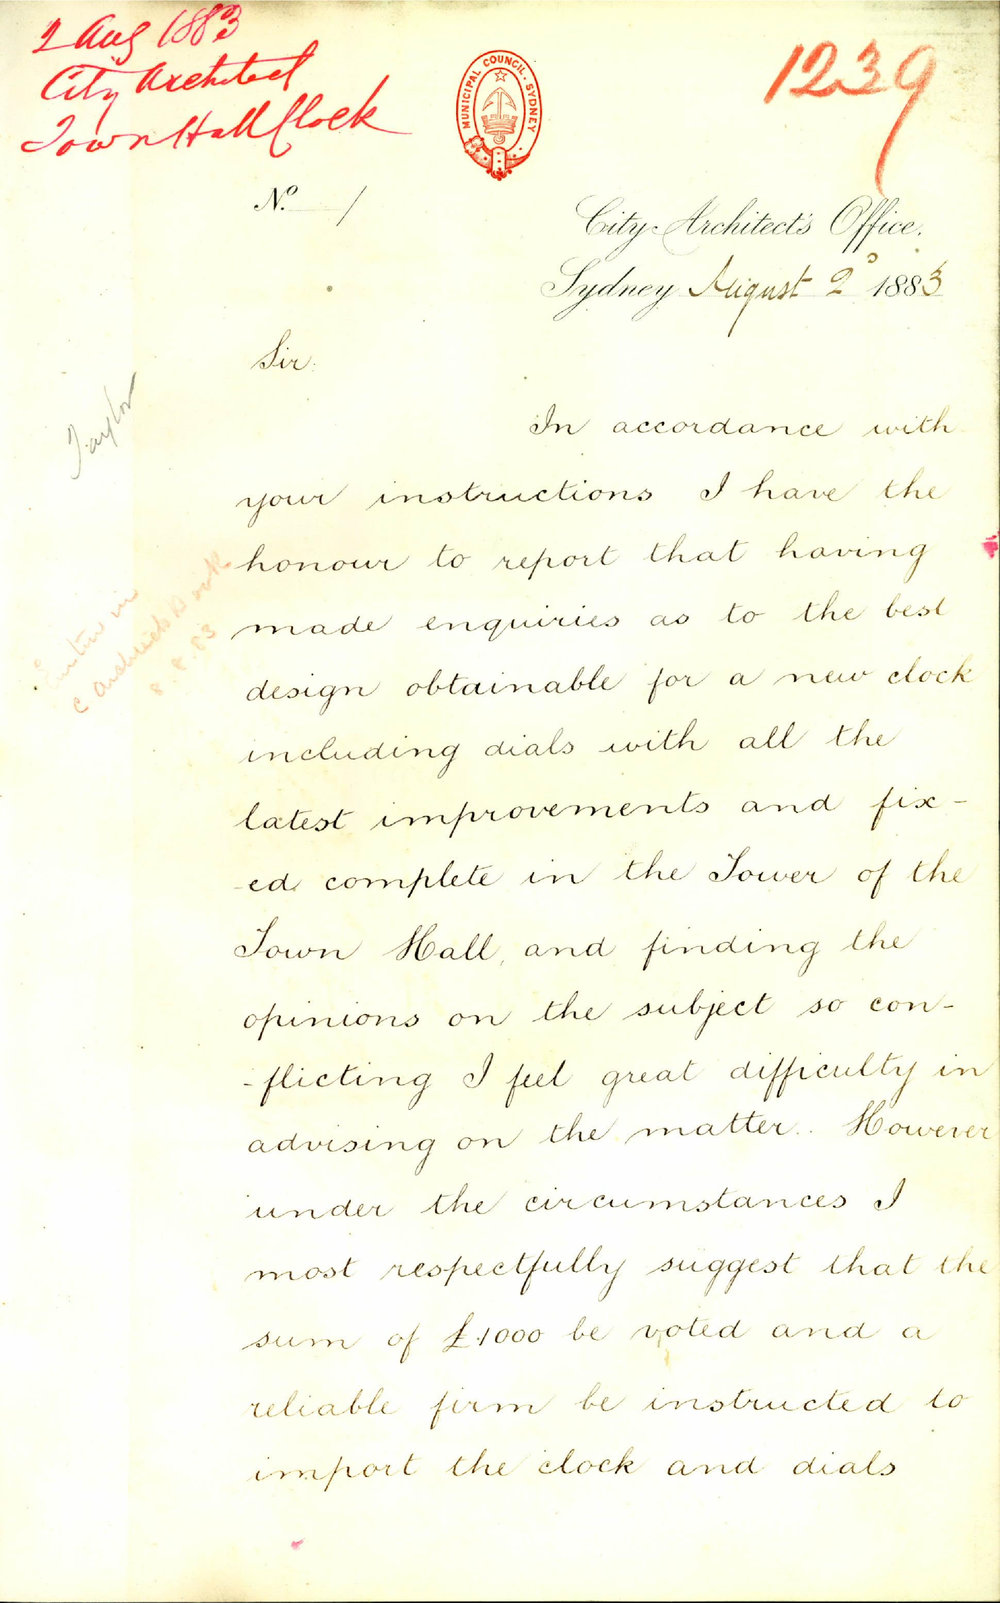 2 Aug 1883
City Architect
Town Hall Clock
MUNICIPAL COUNCIL. SYDNEY
1239
No. 1
City Architect's Office.
Sydney August 2d 1883
Sir.
Taylor
In accordance with
your instructions I have the
honour to report that having
made enquiries as to the best
design obtainable for a new clock
including dials with all the
latest improvements and fix-
-ed complete in the Tower of the
Town Hall, and finding the
opinions on the subject so con-
-flicting I feel great difficulty in
advising on the matter. However
under the circumstances I
most respectfully suggest that the
sum of £1000 be voted and a
reliable firm be instructed to
import the clock and dials
Enter in
C Architects Book
8.8.83